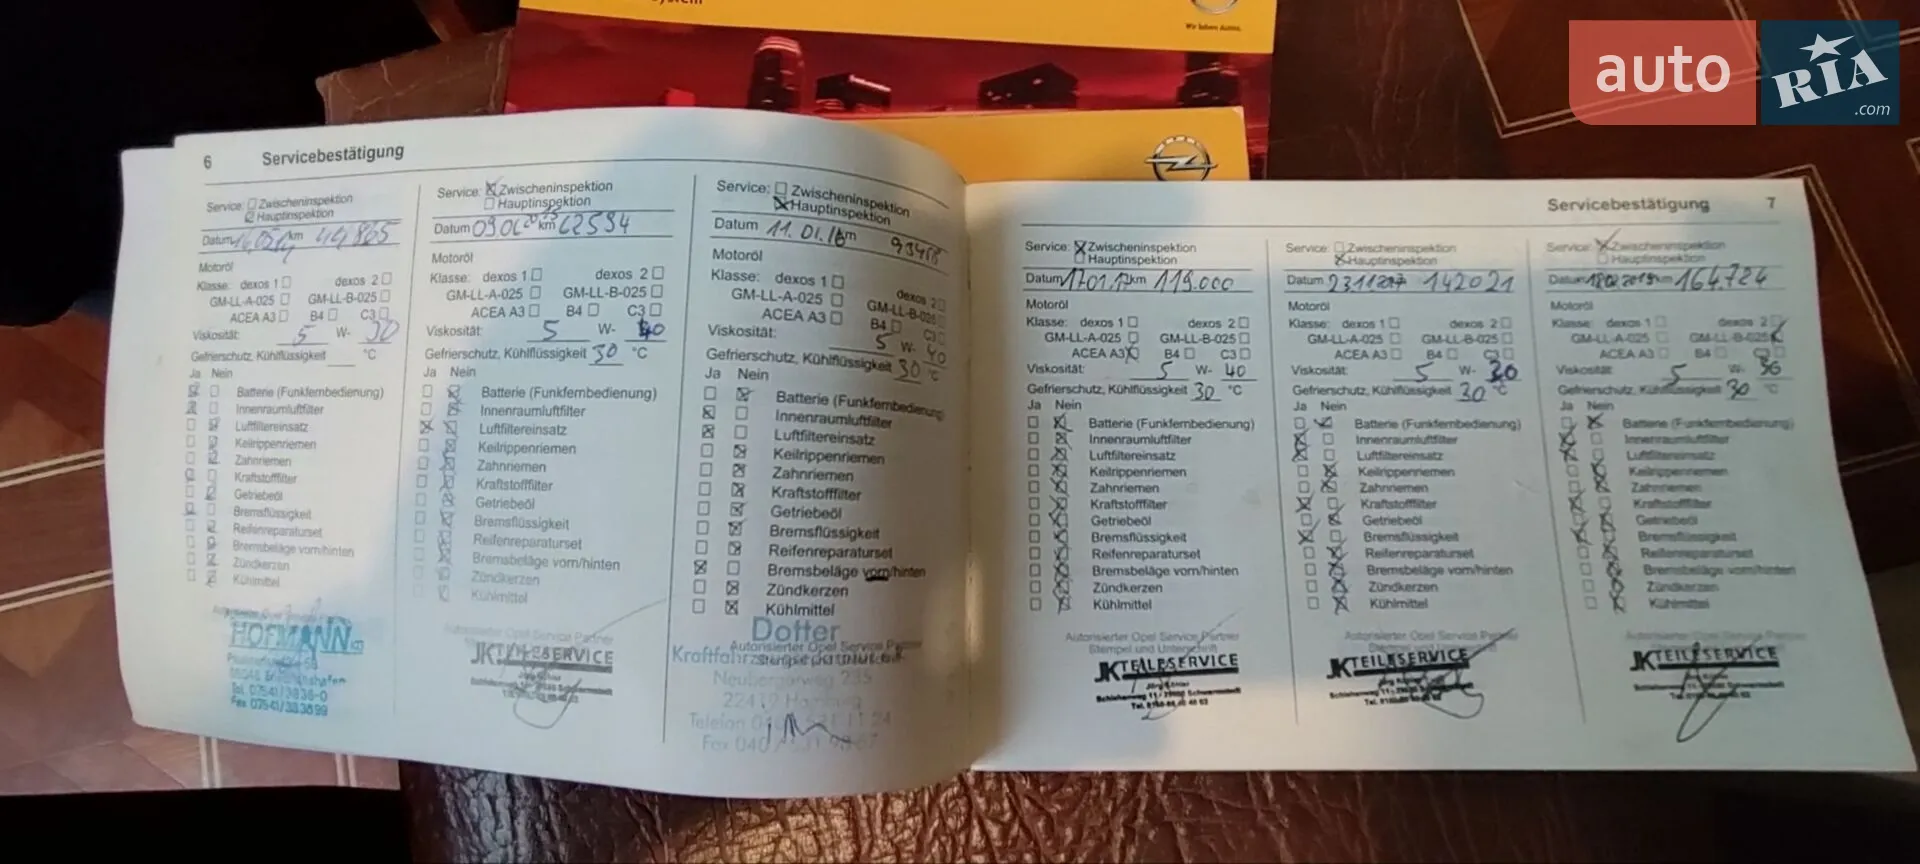 Wir leben Autos.
auto
RIA
.com
6 Servicebestätigung
Service: Zwischeninspektion
Hauptinspektion
Datum km 44865
Motoröl
Klasse: dexos 1 dexos 2
GM-LL-A-025 GM-LL-B-025
ACEA A3 B4 C3
Viskosität: 5 W- 30
Gefrierschutz, Kühlflüssigkeit °C
Ja Nein
Batterie (Funkfernbedienung)
Innenraumluftfilter
Luftfiltereinsatz
Keilrippenriemen
Zahnriemen
Kraftstofffilter
Getriebeöl
Bremsflüssigkeit
Reifenreparaturset
Bremsbeläge vorn/hinten
Zündkerzen
Kühlmittel
HOFMANN
Tel. 07541/3836-0
Fax 07541/383699
Service: Zwischeninspektion
Hauptinspektion
Datum km 62594
Motoröl
Klasse: dexos 1 dexos 2
GM-LL-A-025 GM-LL-B-025
ACEA A3 B4 C3
Viskosität: 5 W- 40
Gefrierschutz, Kühlflüssigkeit 30 °C
Ja Nein
Batterie (Funkfernbedienung)
Innenraumluftfilter
Luftfiltereinsatz
Keilrippenriemen
Zahnriemen
Kraftstofffilter
Getriebeöl
Bremsflüssigkeit
Reifenreparaturset
Bremsbeläge vorn/hinten
Zündkerzen
Kühlmittel
Autorisierter Opel Service Partner
JK TEILESERVICE
Service: Zwischeninspektion
Hauptinspektion
Datum 11.01.16 km
Motoröl
Klasse: dexos 1 dexos 2
GM-LL-A-025 GM-LL-B-025
ACEA A3 B4 C3
Viskosität: 5 W- 40
Gefrierschutz, Kühlflüssigkeit 30 °C
Ja Nein
Batterie (Funkfernbedienung)
Innenraumluftfilter
Luftfiltereinsatz
Keilrippenriemen
Zahnriemen
Kraftstofffilter
Getriebeöl
Bremsflüssigkeit
Reifenreparaturset
Bremsbeläge vorn/hinten
Zündkerzen
Kühlmittel
Dotter
Autorisierter Opel Service Partner
22419 Hamburg
Servicebestätigung 7
Service: Zwischeninspektion
Hauptinspektion
Datum 17.01.17 km 119.000
Motoröl
Klasse: dexos 1 dexos 2
GM-LL-A-025 GM-LL-B-025
ACEA A3 B4 C3
Viskosität: 5 W- 40
Gefrierschutz, Kühlflüssigkeit 30 °C
Ja Nein
Batterie (Funkfernbedienung)
Innenraumluftfilter
Luftfiltereinsatz
Keilrippenriemen
Zahnriemen
Kraftstofffilter
Getriebeöl
Bremsflüssigkeit
Reifenreparaturset
Bremsbeläge vorn/hinten
Zündkerzen
Kühlmittel
Autorisierter Opel Service Partner
Stempel und Unterschrift
JK TEILESERVICE
Service: Zwischeninspektion
Hauptinspektion
Datum 142021
Motoröl
Klasse: dexos 1 dexos 2
GM-LL-A-025 GM-LL-B-025
ACEA A3 B4 C3
Viskosität: 5 W- 30
Gefrierschutz, Kühlflüssigkeit 30 °C
Ja Nein
Batterie (Funkfernbedienung)
Innenraumluftfilter
Luftfiltereinsatz
Keilrippenriemen
Zahnriemen
Kraftstofffilter
Getriebeöl
Bremsflüssigkeit
Reifenreparaturset
Bremsbeläge vorn/hinten
Zündkerzen
Kühlmittel
Autorisierter Opel Service Partner
JK TEILESERVICE
Service: Zwischeninspektion
Hauptinspektion
Datum km 164.724
Motoröl
Klasse: dexos 1 dexos 2
GM-LL-A-025 GM-LL-B-025
ACEA A3 B4 C3
Viskosität: 5 W- 30
Gefrierschutz, Kühlflüssigkeit 30 °C
Ja Nein
Batterie (Funkfernbedienung)
Innenraumluftfilter
Luftfiltereinsatz
Keilrippenriemen
Zahnriemen
Kraftstofffilter
Getriebeöl
Bremsflüssigkeit
Reifenreparaturset
Bremsbeläge vorn/hinten
Zündkerzen
Kühlmittel
Autorisierter Opel Service Partner
JK TEILESERVICE